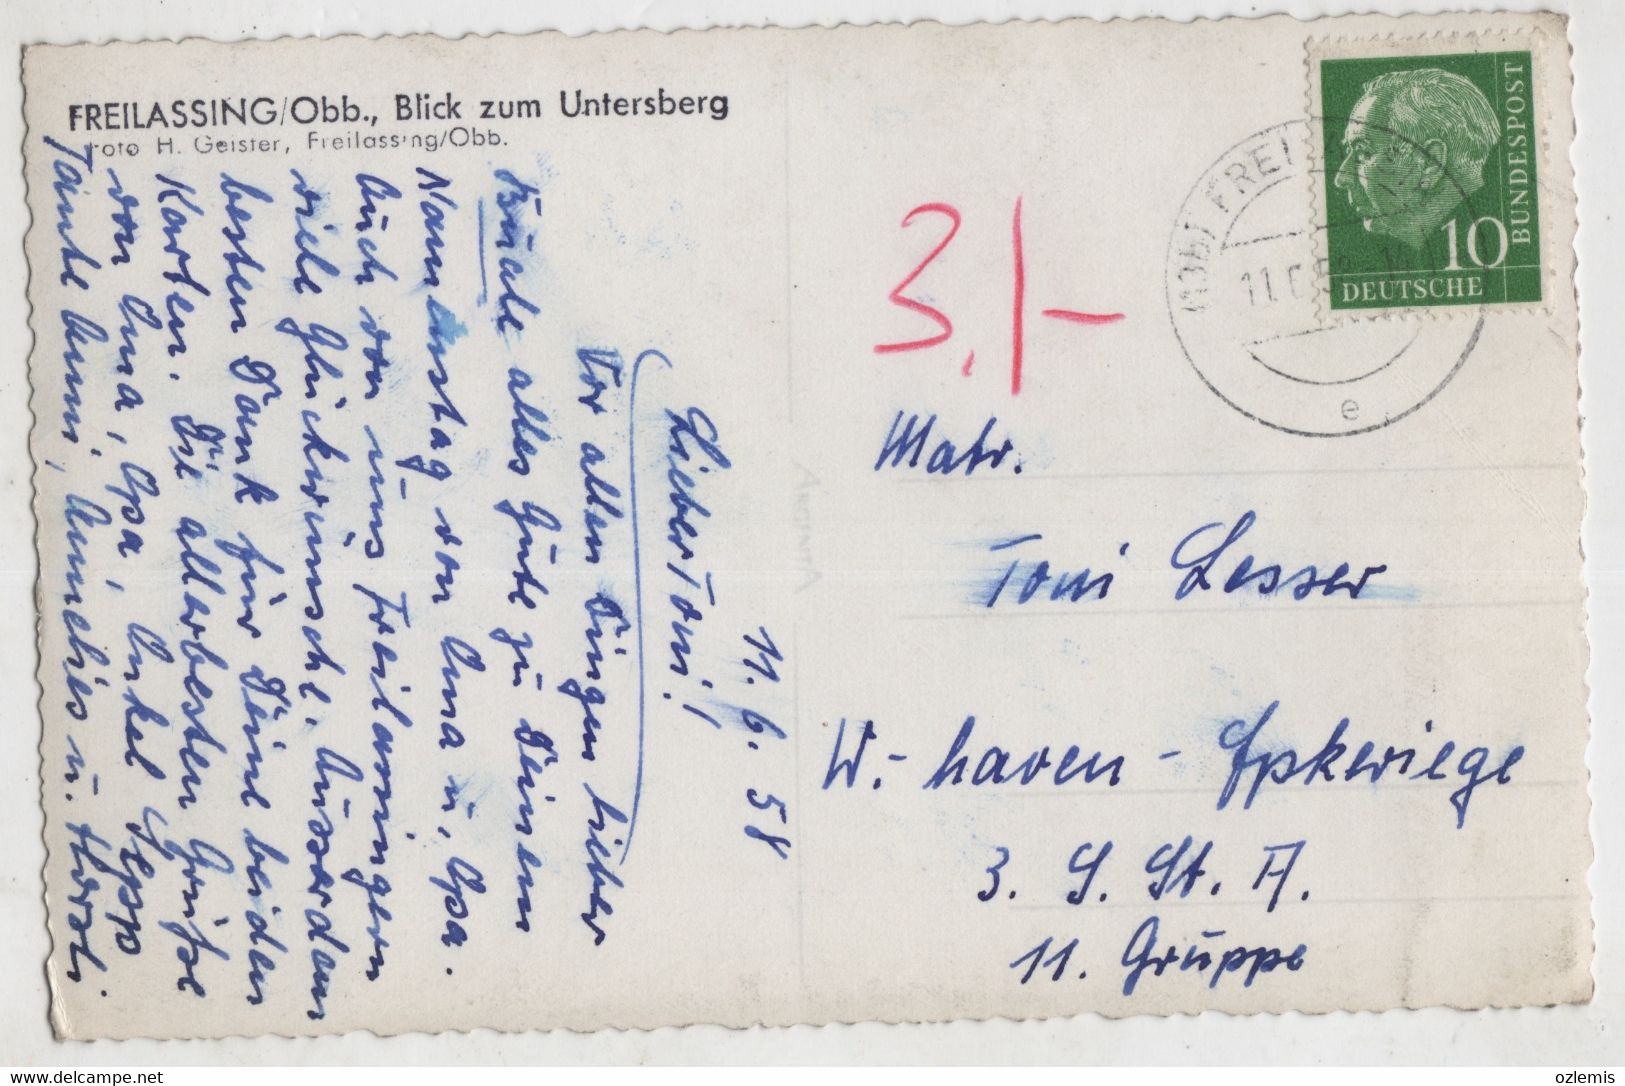 FREILASSING/Obb., Blick zum Untersberg
Foto H. Geister, Freilassing/Obb.
11. 6. 58
Lieber Toni!
Vor allen Dingen lieber
alles Gute zu Deinem
Namenstag von Oma u. Opa.
Auch von uns Freilassingern
viele Glückwünsche. Ausserdem
besten Dank für Deine beiden
Karten. Die allerbesten Grüße
von Oma, Opa, Onkel Sepp
Tante Anni, Annelies u. Horst.
3,/-
FREI
11. 58
e
10
DEUTSCHE
BUNDESPOST
Matr.
Toni Lesser
W.-haven-
3. S. St. A.
11. Gruppe
https://www.delcampe.net
ozlemis